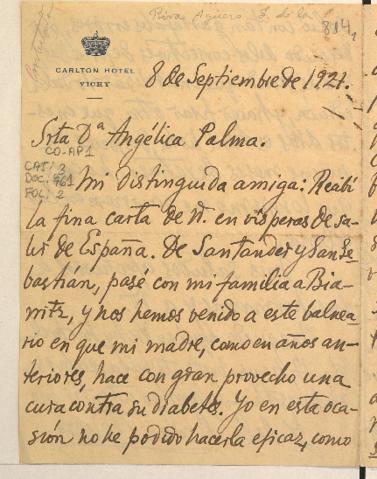 Riva Agüero, J. de la
814,
Contestada
CARLTON HOTEL
VICHY
8 de Septiembre de 1927.
Srta Dª Angélica Palma.
CO-AP1
CAT: 3
DOC: 961
FOL: 2
Mi distinguida amiga: Recibí
la fina carta de V. en vísperas de sa-
lir de España. De Santander y San Se-
bastián, pasé con mi familia a Bia-
rritz, y nos hemos venido a este balnea-
rio en que mi madre, como en años an-
teriores, hace con gran provecho una
cura contra su diabetes. Yo en esta oca-
sión no he podido hacerla eficaz, como